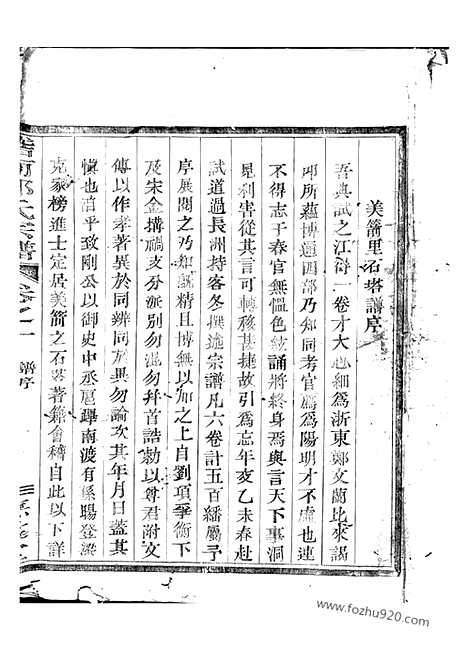 美箭里石塔譜序
吾典試之江得一卷才大心細爲浙東鄭文蘭比來謁
所蘊博通四部乃知同考官薦爲陽明才不虛也連
不得志于春官無慍色絃誦將終身焉與言天下事洞
見利害從其言可轉移甚捷故引爲忘年亥乙未春赴
試道過長洲持客冬撰述宗譜凡六卷計五百繙屬予
序展閱之乃知既精且博無以加之上自劉項爭衡下
及宋金搆禍支分派別勿混勿弁首誥勅以尊君附文
傳以作孝著異於同辨同於異勿論次其年月日蓋其
愼也自平致剛公以御史中丞扈蹕南渡有係暘登梁
克家榜進士定居美箭之石塔著籍會稽自此以下詳
氏宗譜
卷之一
譜序
www.fozhu920.com